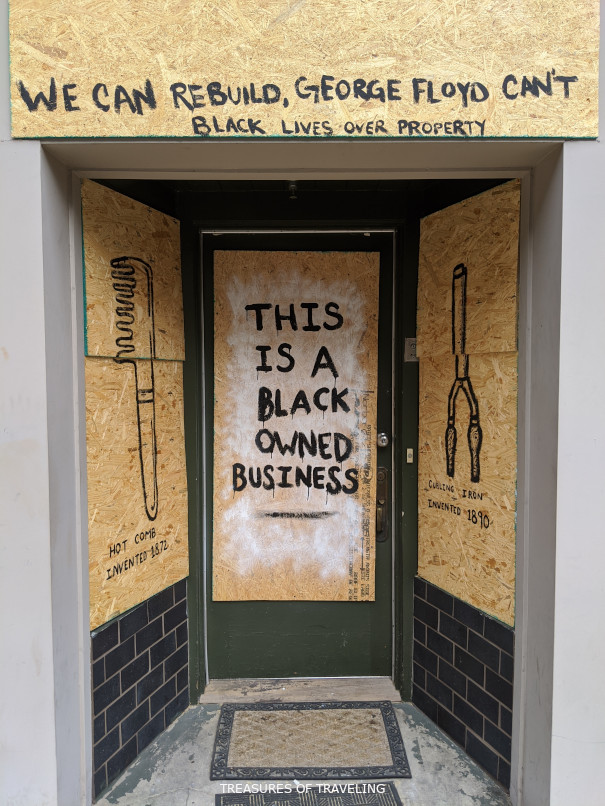 WE CAN REBUILD, GEORGE FLOYD CAN'T
BLACK LIVES OVER PROPERTY
THIS
IS A
BLACK
OWNED
BUSINESS
HOT COMB
INVENTED 1872
CURLING IRON
INVENTED 1890
TREASURES OF TRAVELING